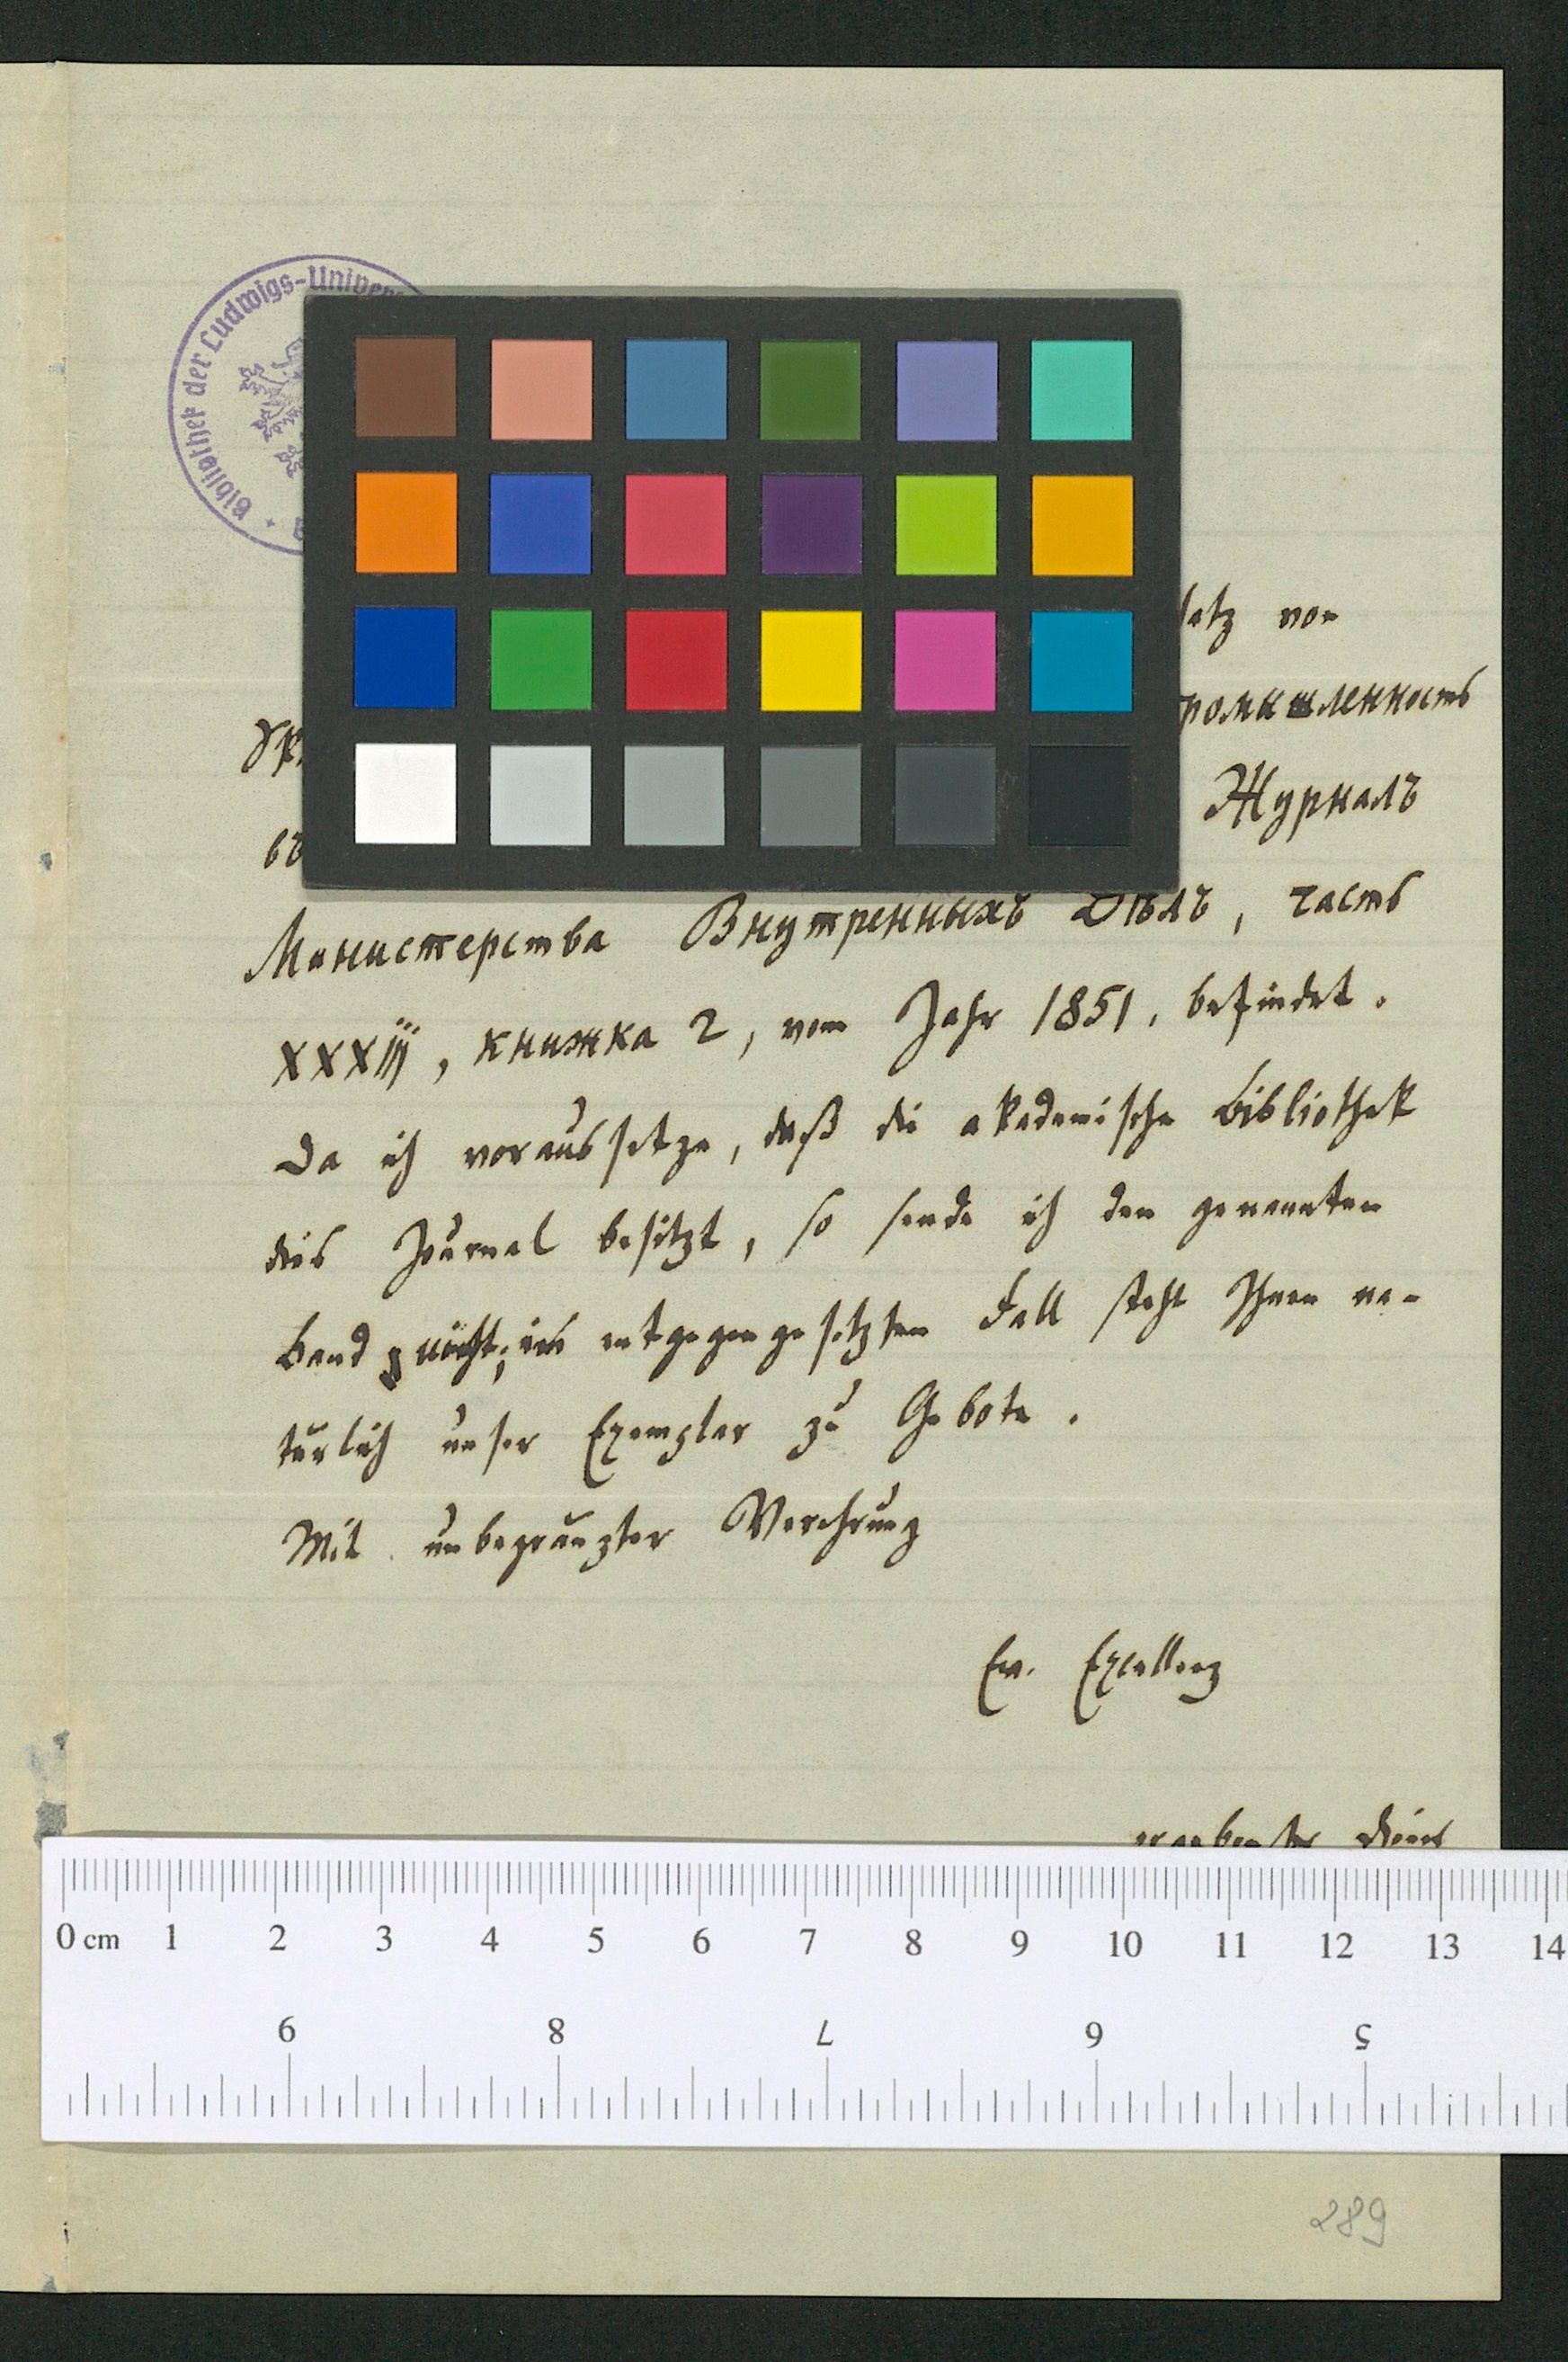 Bibliothek der Ludwigs-Univer
satz von
ромышленность
Журналъ
въ
Министерства Внутреннихъ Дѣлъ, часть
XXXIII, книжка 2, vom Jahr 1851, befindet.
Da ich voraussetze, daß die akademische Bibliothek
dies Journal besitzt, so sende ich den genannten
Band nicht; im entgegengesetzten Fall steht Ihnen na-
türlich unser Exemplar zu Gebote.
Mit unbegränzter Verehrung
Ew. Excellenz
ergebenster Diener
0 cm 1 2 3 4 5 6 7 8 9 10 11 12 13 14
9 8 7 6 5
289